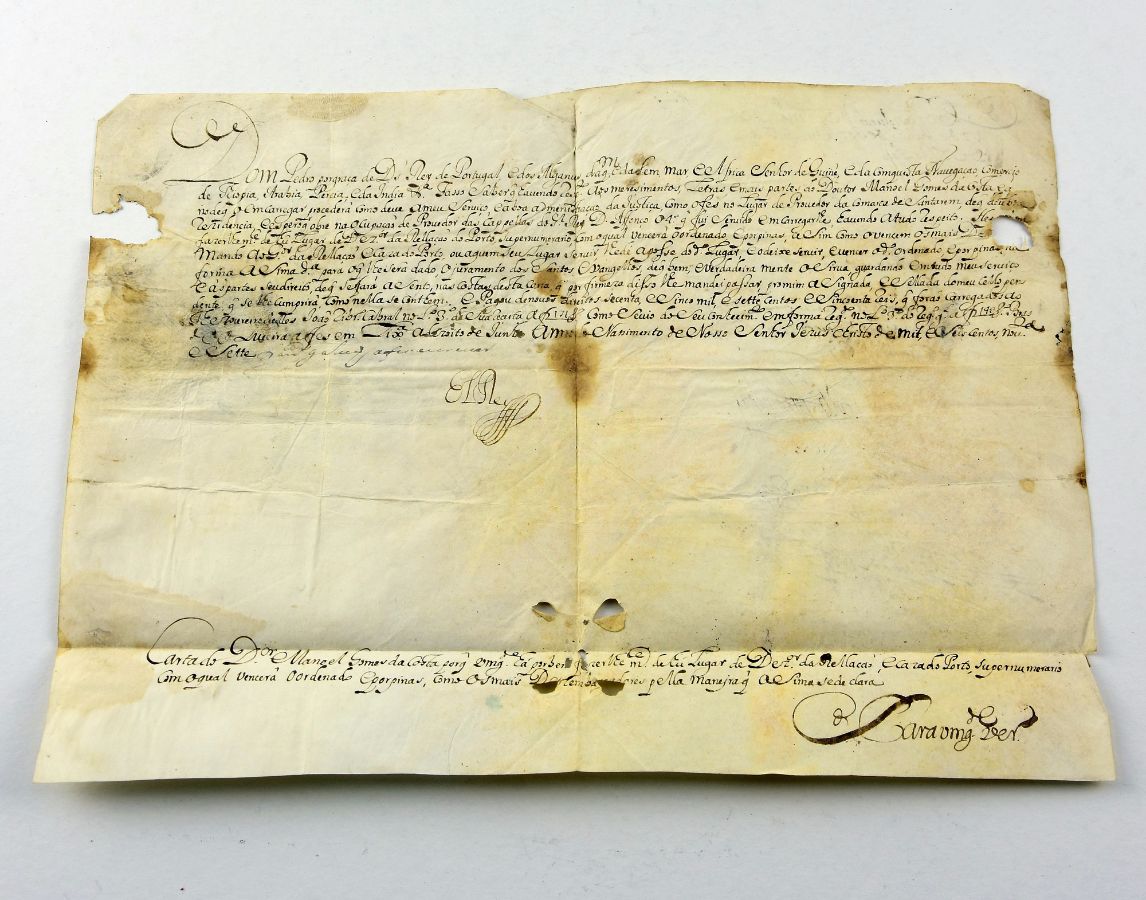 Dom Pedro por graça de Ds Rey de Portugal, e dos Algarues daq.m e dalem mar e Africa Senhor de Guiné, e da Conquista Nauegação Comercio
de Etiopia, Arabia, Percia, e da India &a Fasso Saber q hauendo resp.to Aos meresimentos, Letras e mais partes do Doutor Manoel Gomes da Costa e q
no de q o encarregar procederá como deue a meu seruiço, e a boa administração da Justiça, como o fes no Lugar de Prouedor da Comarca de Santarem, de q deu boa
Rezidencia, e espero q obre na Ocupação de Prouedor das Capellas do s.r Rey D. Affonso o 4º q fui seruido encarregarlhe hauendo a tudo respeito. Hey por bem
fazerlhe m.ce de hũ Lugar de Dez.or da Rellação do Porto Supernumerario com o qual vencerá o ordenado, e propinas, asim como o vencem os mais
Mando ao G.or da Rellação e Caza do Porto, ou a quem seu Lugar seruir lhe dê a posse do d.o Lugar, e o deixe seruir, e vencer o d.o ordenado, e propinas, na
forma asima d.a para o q lhe será dado o juramento dos Santos Euangelhos, de q bem, e verdadeira mente o sirua, guardando em tudo meu seruiço
e as partes seu direito, de q se fará asento, nas costas desta Carta, q por firmeza disso lhe mandei passar, por mim asignada, e sellada do meu sello pen
dente, q se lhe cumprirá como nella se conthem. E Pagou de nouos direitos secenta, e sinco mil e sette centos e sincoenta reis, q forão carregados ao
Thez.ro Joaõ Cabral no L.o 3º de sua receita a f. como se uio do seu conhecim.to em forma reg.do no L.o 3º do Reg.o a f.
a fes em Lx.a a de oito de Junho Anno do Nasimento de Nosso Senhor Jesus Christo de mil, e seis centos, nou.ta
e Sette
El Rey
Carta do D.or Manoel Gomes da Costa porq Vmg.de ha por bem fazerlhe m.ce de hũ Lugar de Dez.or da Rellação, e Caza do Porto, supernumerario
com o qual vencerá o ordenado e propinas, como os mais Dezembargadores pella maneira q asima se declara
Para Vmg.de Ver.